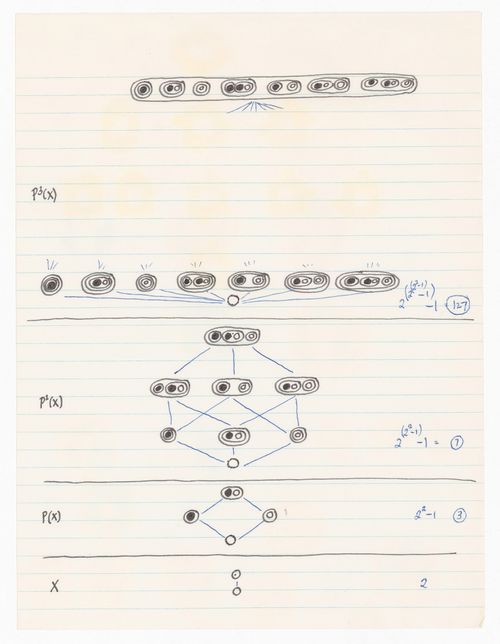 P³(X)
2^(2^(2²-1)-1) -1 = 127
P²(X)
2^(2²-1) -1 = 7
P(X)
2²-1 3
X
2